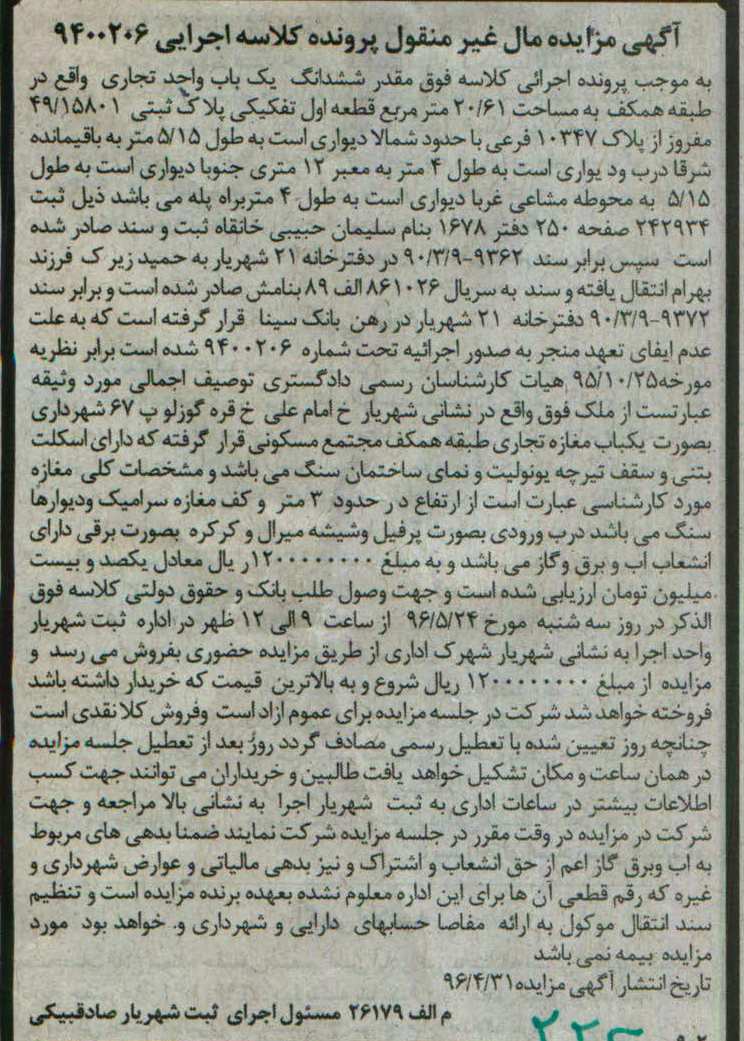 آگهی مزایده مال غیر منقول پرونده کلاسه اجرایی ۹۴۰۰۲۰۶
به موجب پرونده اجرائی کلاسه فوق مقدر ششدانگ یک باب واحد تجاری واقع در
طبقه همکف به مساحت ۲۰/۶۱ متر مربع قطعه اول تفکیکی پلاک ثبتی ۴۹/۱۵۸۰۱
مفروز از پلاک ۱۰۳۴۷ فرعی با حدود شمالا دیواری است به طول ۵/۱۵ متر به باقیمانده
شرقا درب ود یواری است به طول ۴ متر به معبر ۱۲ متری جنوبا دیواری است به طول
۵/۱۵ به محوطه مشاعی غربا دیواری است به طول ۴ متربراه پله می باشد ذیل ثبت
۲۴۲۹۳۴ صفحه ۲۵۰ دفتر ۱۶۷۸ بنام سلیمان حبیبی خانقاه ثبت و سند صادر شده
است سپس برابر سند ۹۳۶۲-۹۰/۳/۹ در دفترخانه ۲۱ شهریار به حمید زیر ک فرزند
بهرام انتقال یافته و سند به سریال ۸۶۱۰۲۶ الف ۸۹ بنامش صادر شده است و برابر سند
۹۳۷۲-۹۰/۳/۹ دفترخانه ۲۱ شهریار در رهن بانک سینا قرار گرفته است که به علت
عدم ایفای تعهد منجر به صدور اجرائیه تحت شماره ۹۴۰۰۲۰۶ شده است برابر نظریه
مورخه۹۵/۱۰/۲۵ هیات کارشناسان رسمی دادگستری توصیف اجمالی مورد وثیقه
عبارتست از ملک فوق واقع در نشانی شهریار خ امام علی خ قره گوزلو پ ۶۷ شهرداری
بصورت یکباب مغازه تجاری طبقه همکف مجتمع مسکونی قرار گرفته که دارای اسکلت
بتنی و سقف تیرچه یونولیت و نمای ساختمان سنگ می باشد و مشخصات کلی مغازه
مورد کارشناسی عبارت است از ارتفاع د ر حدود ۳ متر و کف مغازه سرامیک ودیوارها
سنگ می باشد درب ورودی بصورت پرفیل وشیشه میرال و کرکره بصورت برقی دارای
انشعاب اب و برق وگاز می باشد و به مبلغ ۱۲۰۰۰۰۰۰۰۰ر یال معادل یکصد و بیست
میلیون تومان ارزیابی شده است و جهت وصول طلب بانک و حقوق دولتی کلاسه فوق
الذکر در روز سه شنبه مورخ ۹۶/۵/۲۴ از ساعت ۹ الی ۱۲ ظهر در اداره ثبت شهریار
واحد اجرا به نشانی شهریار شهرک اداری از طریق مزایده حضوری بفروش می رسد و
مزایده از مبلغ ۱۲۰۰۰۰۰۰۰۰ ریال شروع و به بالاترین قیمت که خریدار داشته باشد
فروخته خواهد شد شرکت در جلسه مزایده برای عموم ازاد است وفروش کلا نقدی است
چنانچه روز تعیین شده با تعطیل رسمی مصادف گردد روز بعد از تعطیل جلسه مزایده
در همان ساعت و مکان تشکیل خواهد یافت طالبین و خریداران می توانند جهت کسب
اطلاعات بیشتر در ساعات اداری به ثبت شهریار اجرا به نشانی بالا مراجعه و جهت
شرکت در مزایده در وقت مقرر در جلسه مزایده شرکت نمایند ضمنا بدهی های مربوط
به اب وبرق گاز اعم از حق انشعاب و اشتراک و نیز بدهی مالیاتی و عوارض شهرداری و
غیره که رقم قطعی آن ها برای این اداره معلوم نشده بعهده برنده مزایده است و تنظیم
سند انتقال موکول به ارائه مفاصا حسابهای دارایی و شهرداری و. خواهد بود مورد
مزایده بیمه نمی باشد
تاریخ انتشار آگهی مزایده۹۶/۴/۳۱
م الف ۲۶۱۷۹ مسئول اجرای ثبت شهریار صادقبیکی